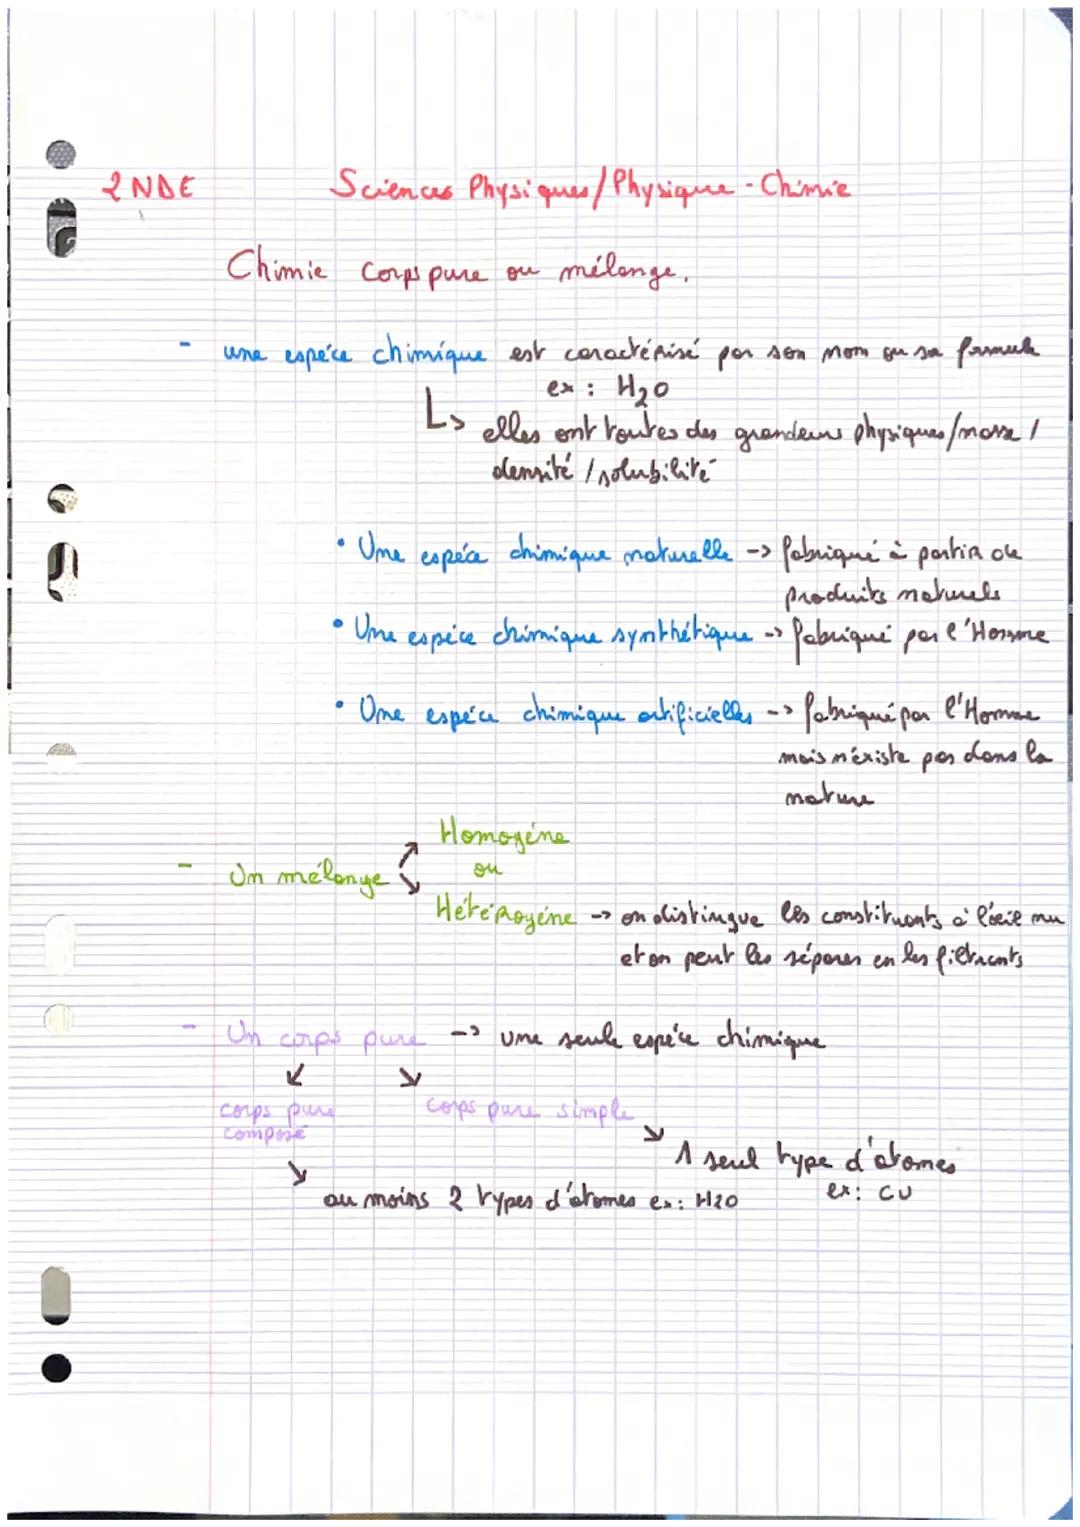 2NDE Sciences Physiques/Physique-Chimie
Chimie corps pure ou mélange.
- une espéce chimique est caractérisé par son nom ou sa formule
ex : H₂O
↳ elles ont toutes des grandeurs physiques/masse/
densité/solubilité
• Une espéce chimique naturelle -> fabriqué à partir de
produits naturels
• Une espéce chimique synthétique -> fabriqué par l'Homme
• Une espéce chimique artificielles -> fabriqué par l'Homme
mais n'existe pas dans la
nature
Homogéne
- Un mélange ou
Hétérogéne -> on distingue les constituants à l'oeil nu
et on peut les séparer en les filtrants
- Un corps pure -> une seule espéce chimique
corps pure corps pure simple
composé
1 seul type d'atomes
au moins 2 types d'atomes ex: H2O ex: CU